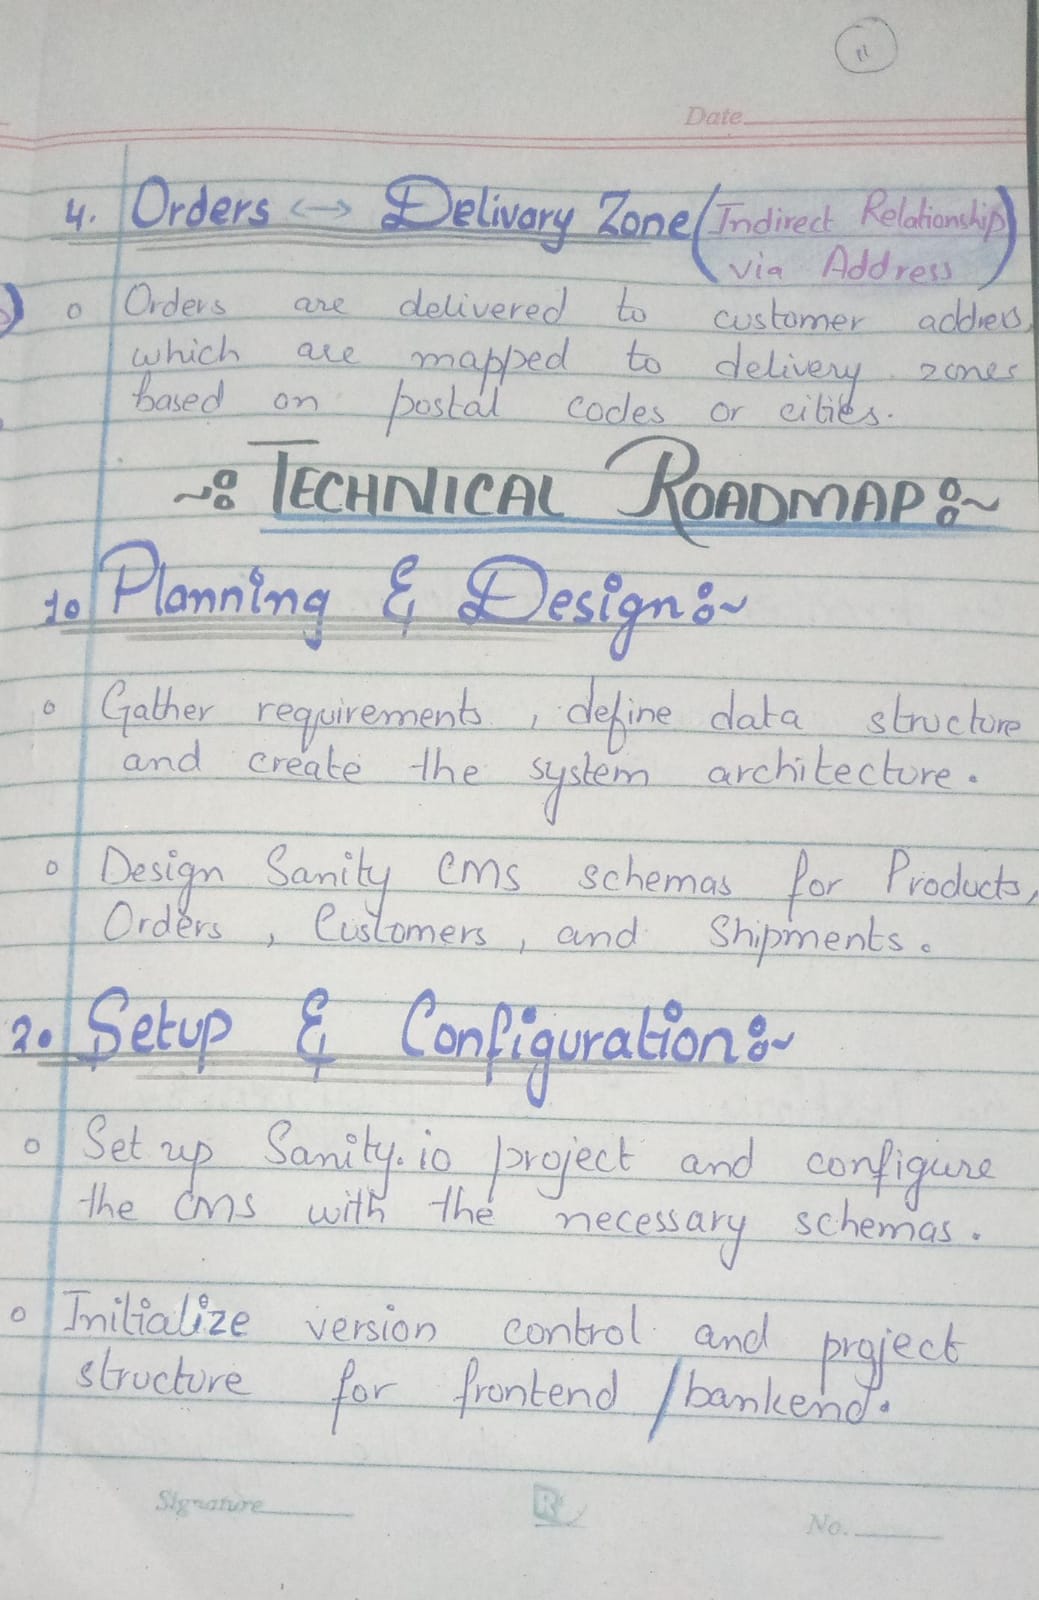 11
Date
4. Orders ↔ Delivary Zone (Indirect Relationship
via Address)
o Orders are delivered to customer address
which are mapped to delivery zones
based on postal codes or cities.
~: TECHNICAL ROADMAP :~
1. Planning & Design:~
o Gather requirements, define data structure
and create the system architecture.
o Design Sanity CMS schemas for Products,
Orders, Customers, and Shipments.
2. Setup & Configuration:~
o Set up Sanity.io project and configure
the CMS with the necessary schemas.
o Initialize version control and project
structure for frontend /bankend.
Signature
No.